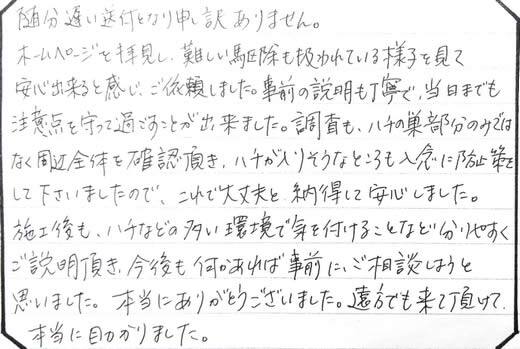 随分遅い送付となり申し訳ありません。
ホームページを拝見し、難しい駆除も扱われている様子を見て
安心出来ると感じ、ご依頼しました。事前の説明も丁寧で、当日までも
注意点を守って過ごすことが出来ました。調査も、ハチの巣部分のみでは
なく周辺全体を確認頂き、ハチが入りそうなところも入念に防止策を
して下さいましたので、これで大丈夫と納得して安心しました。
施工後も、ハチなどの多い環境で気を付けることなど分りやすく
ご説明頂き、今後も何かあれば事前に、ご相談しようと
思いました。本当にありがとうございました。遠方でも来て頂けて、
本当に助かりました。